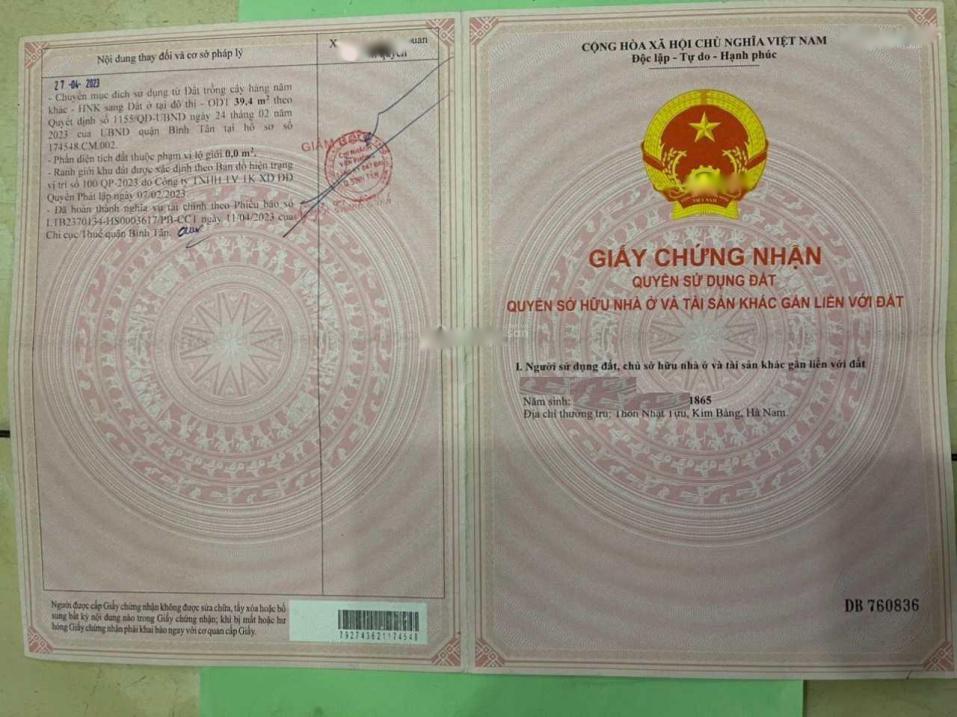 Nội dung thay đổi và cơ sở pháp lý
27-04-2023
- Chuyển mục đích sử dụng từ Đất trồng cây hàng năm
khác - HNK sang Đất ở tại đô thị - ODT 39,4 m² theo
Quyết định số 1155/QD-UBND ngày 24 tháng 02 năm
2023 của UBND quận Bình Tân tại hồ sơ số
174548.CM.002.
- Phần diện tích đất thuộc phạm vi lộ giới 0,0 m².
- Ranh giới khu đất được xác định theo Bản đồ hiện trạng
vị trí số 100 QP-2023 do Công ty TNHH TV TK XD ĐĐ
Quyên Phát lập ngày 07/02/2023.
- Đã hoàn thành nghĩa vụ tài chính theo Phiếu báo số
LTB2370134-HS0003617/PB-CCT ngày 11/04/2023 của
Chi cục Thuế quận Bình Tân.
X
uan
GIÁM
Người được cấp Giấy chứng nhận không được sửa chữa, tẩy xóa hoặc bổ
sung bất kỳ nội dung nào trong Giấy chứng nhận; khi bị mất hoặc hư
hỏng Giấy chứng nhận phải khai báo ngay với cơ quan cấp Giấy.
792743621174548
CỘNG HÒA XÃ HỘI CHỦ NGHĨA VIỆT NAM
Độc lập - Tự do - Hạnh phúc
VIỆT NAM
GIẤY CHỨNG NHẬN
QUYỀN SỬ DỤNG ĐẤT
QUYỀN SỞ HỮU NHÀ Ở VÀ TÀI SẢN KHÁC GẮN LIỀN VỚI ĐẤT
I. Người sử dụng đất, chủ sở hữu nhà ở và tài sản khác gắn liền với đất
Năm sinh: 1865
Địa chỉ thường trú: Thôn Nhật Tựu, Kim Bảng, Hà Nam.
DB 760836